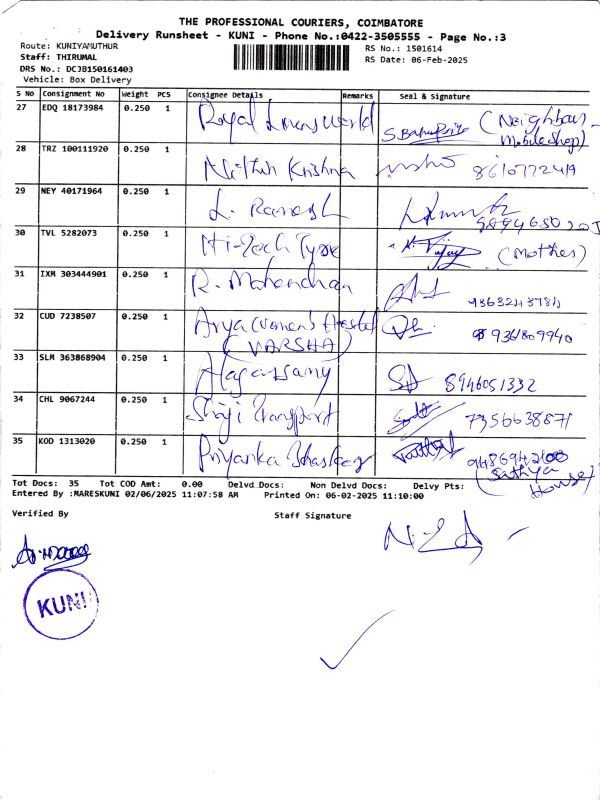 THE PROFESSIONAL COURIERS, COIMBATORE
Delivery Runsheet - KUNI - Phone No.:0422-3505555 - Page No.:3
Route: KUNIYAMUTHUR RS No.: 1501614
Staff: THIRUMAL RS Date: 06-Feb-2025
DRS No.: DCJB150161403
Vehicle: Box Delivery
S No Consignment No Weight PCS Consignee Details Remarks Seal & Signature
27 EDQ 18173984 0.250 1 Royal Linens World (Neighbour-
Mobile shop)
28 TRZ 100111920 0.250 1 Nithin Krishna
29 NEY 40171964 0.250 1 L. Ramesh
30 TVL 5282073 0.250 1 Hi-Tech Tyre N. Vijay (Mother)
31 IXM 303444901 0.250 1 R. Mahendran
32 CUD 7238507 0.250 1 Arya Women's Hostel 9361809940
(VARSHA)
33 SLM 363868904 0.250 1 Alagarsamy 8946051332
34 CHL 9067244 0.250 1 Shiji Transport 7356638871
35 KOD 1313020 0.250 1 Priyanka Bhaskar
(Sathya
House)
Tot Docs: 35 Tot COD Amt: 0.00 Delvd Docs: Non Delvd Docs: Delvy Pts:
Entered By :MARESKUNI 02/06/2025 11:07:58 AM Printed On: 06-02-2025 11:10:00
Verified By Staff Signature
KUNI